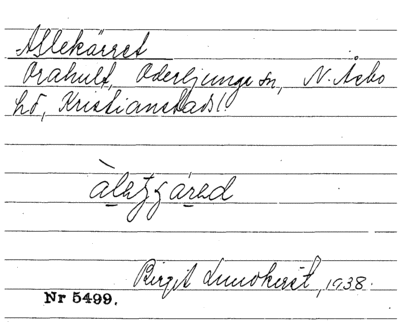 Allekärret
Orahult, Oderljunga sn, N. Åsbo
hd, Kristianstads l.
Birgit Lundkvist, 1938.
Nr 5499.